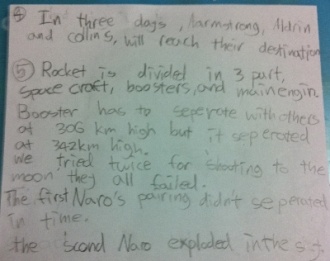 ④ In three days, Narmstrong, Aldrin
and collins, will reach their destination
⑤ Rocket is divided in 3 part,
space craft, boosters, and mainengin
Booster has to seperote with others
at 306 km high but it seperoted
at 342km high.
we tried twice for shooting to the
moon they all failed.
The first Naro's pairing didn't seperated
in time.
the scond Naro exploded in the